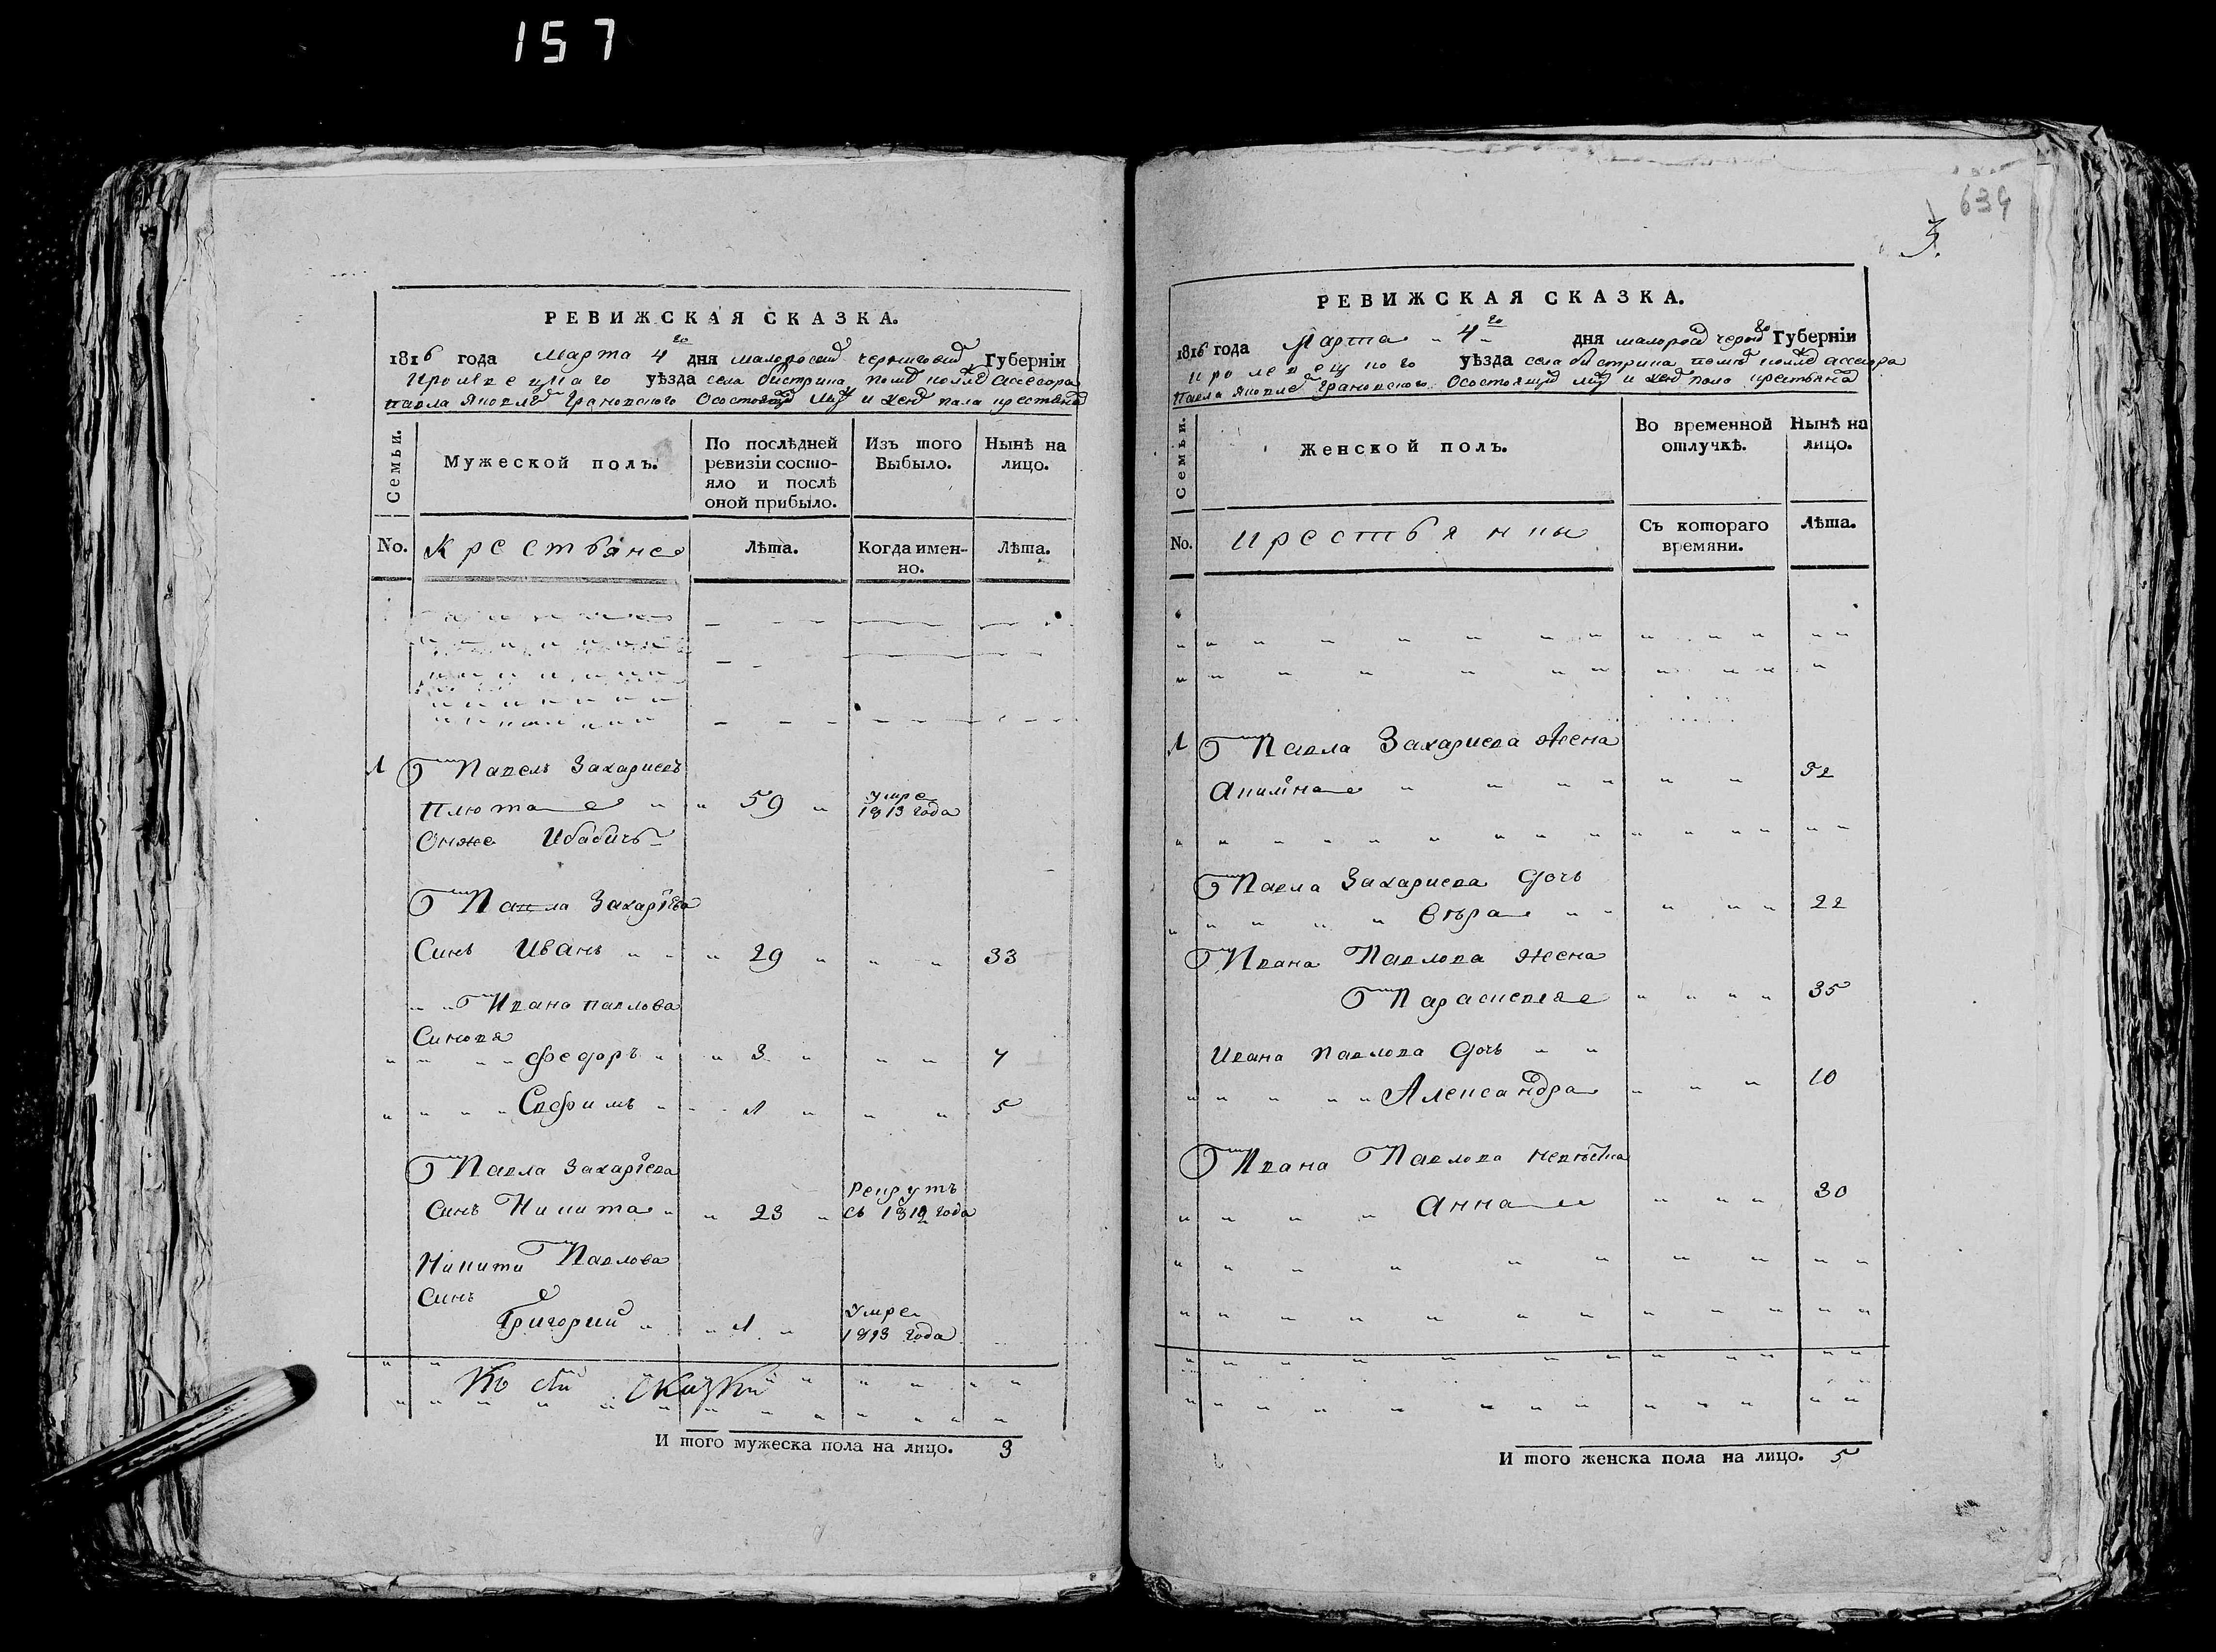 157
РЕВИЖСКАЯ СКАЗКА.
1816 года Марта 4го дня малоросий чернигов Губерніи
Кролевецкаго уѣзда села бистрика колле ассесора
Павла Яковле Грановского О состоящи и жен пола
Семьи.
Мужеской полъ.
По послѣдней ревизіи состо-
яло и послѣ
оной прибыло.
Изъ того
Выбыло.
Нынѣ на
лицо.
No.
Крестьяне
Лѣта.
Когда имен-
но.
Лѣта.
1 Павелъ Захариевъ
Плюта 59 умре
1813 года
Онже
Павла Захаріева
Синъ Иванъ 29 33
Ивана павлова
Синовя
Федоръ 3 7
Евфимъ 1 5
Павла Захаріева
Синъ Никита 23 Рекрутъ
съ 1812 года
Никити Павлова
Синъ
Григорий 1 Умре
1813 года
Къ сей сказки
И того мужеска пола на лицо. 3
634
5.
РЕВИЖСКАЯ СКАЗКА.
1816 года Марта 4го дня малорос черни Губерніи
кролевецкого уѣзда села бистрика колле ассесора
Павла Яковле Грановского О состоящи и жен пола
Семьи.
Женской полъ.
Во временной
отлучкѣ.
Нынѣ на
лицо.
No.
крестьянки
Съ котораго
времяни.
Лѣта.
1 Павла Захариева жена
Акилина 52
Павла Захариева дочь
Вѣра 22
Ивана Павлова жена
Параскевия 35
Ивана Павлова дочь
Александра 10
Ивана Павлова невѣстка
Анна 30
И того женска пола на лицо. 5